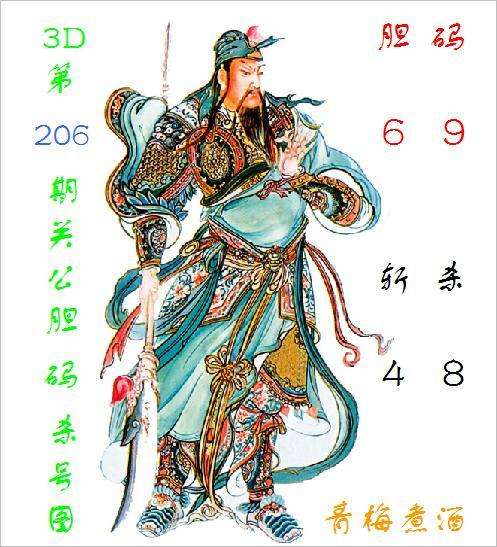 3D
第
206
期
关
公
胆
码
杀
号
图
胆 码
6 9
斩 杀
4 8
青梅煮酒